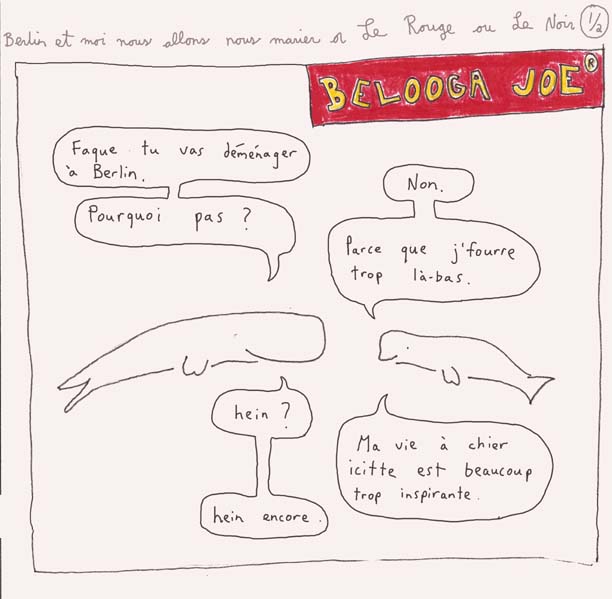 Berlin et moi nous allons nous marier or Le Rouge ou Le Noir 1/2
BELOOGA JOE ®
Faque tu vas déménager
à Berlin.
Non.
Pourquoi pas ?
Parce que j'fourre
trop là-bas.
hein ?
Ma vie à chier
icitte est beaucoup
trop inspirante.
hein encore.